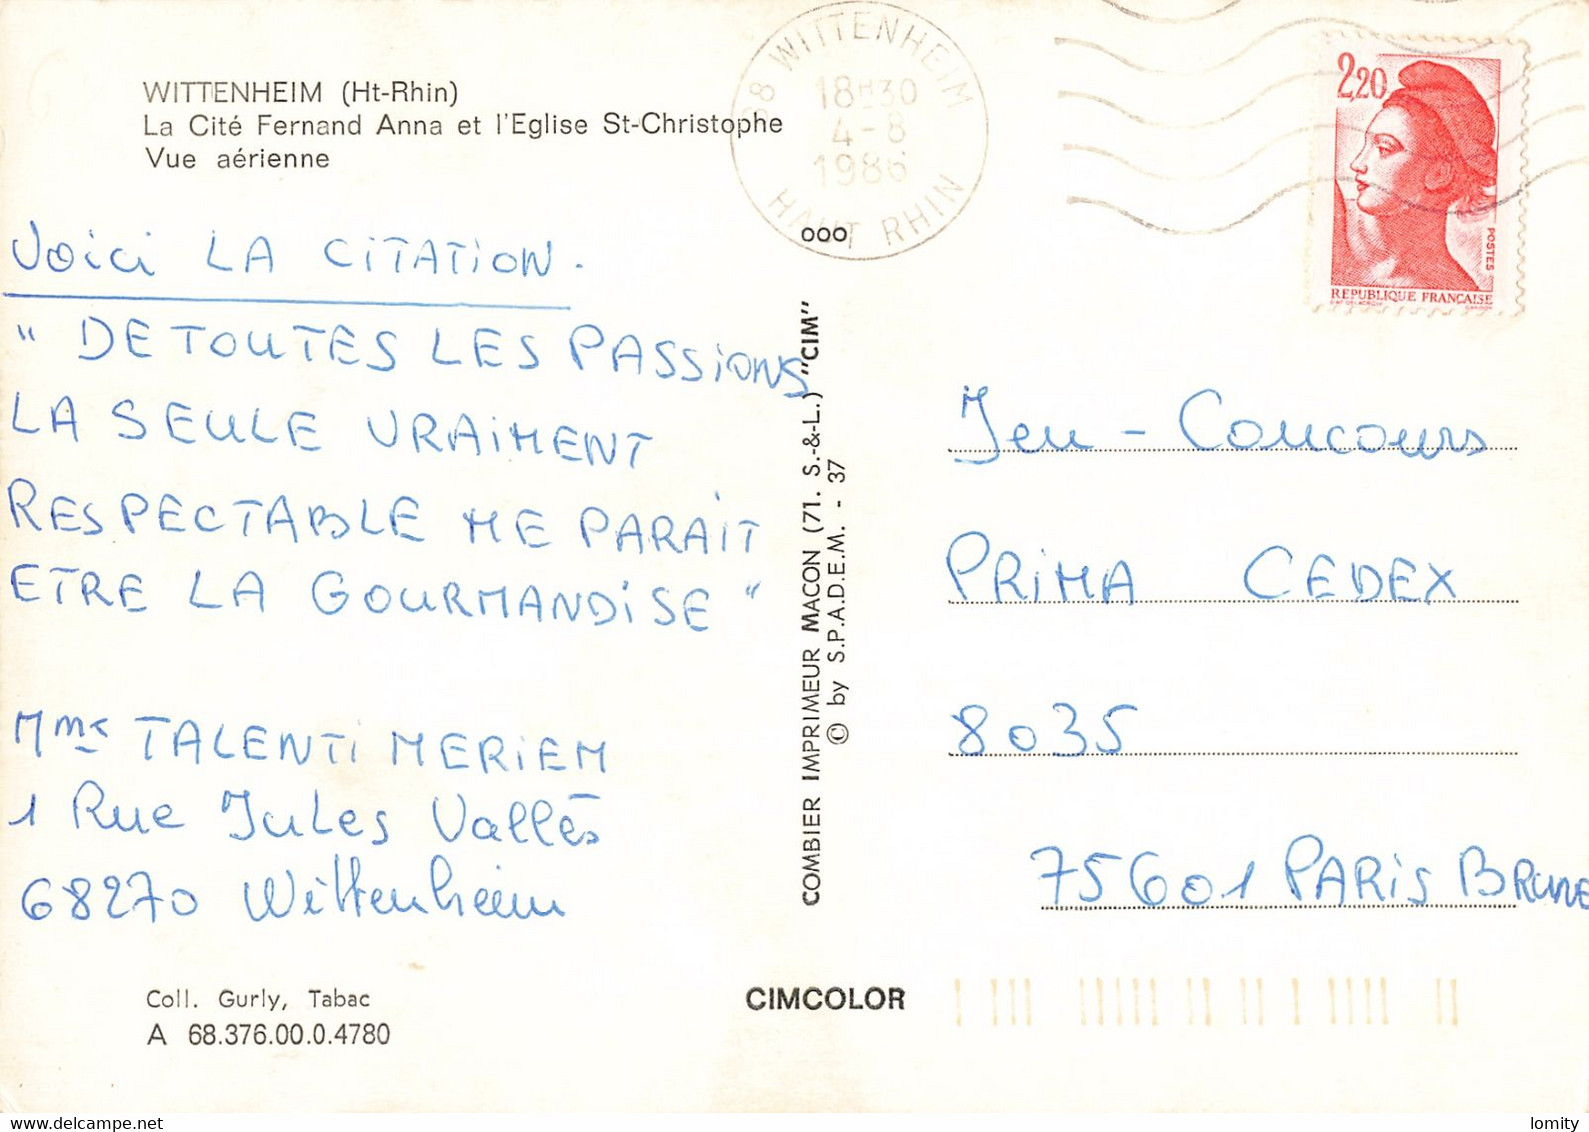 WITTENHEIM (Ht-Rhin)
La Cité Fernand Anna et l'Eglise St-Christophe
Vue aérienne
Voici LA CITATION.
" DE TOUTES LES PASSIONS
LA SEULE VRAIMENT
RESPECTABLE ME PARAIT
ETRE LA GOURMANDISE "
Mme TALENTI MERIEM
1 Rue Jules Vallès
68270 Wittenheim
Coll. Gurly, Tabac
A 68.376.00.0.4780
68 WITTENHEIM
18H30
4-8
1986
HAUT RHIN
000
COMBIER IMPRIMEUR MACON (71. S.-&-L.) "CIM"
© by S.P.A.D.E.M. - 37
CIMCOLOR
2,20
POSTES
REPUBLIQUE FRANÇAISE
Jeu - Concours
PRIMA CEDEX
8035
75601 PARIS BRUNE
lomity